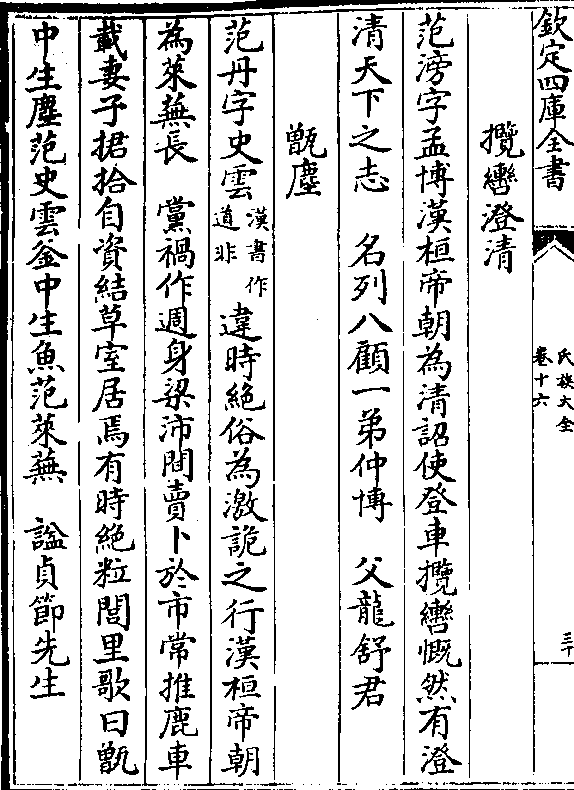 欽定四庫全書
氏族大全
卷十六
三十
攬轡澄清
范滂字孟博漢桓帝朝為清詔使登車攬轡慨然有澄
清天下之志　名列八顧一弟仲博　父龍舒君
甑塵
范丹字史雲漢書作道非違時絶俗為激詭之行漢桓帝朝
為萊蕪長　黨禍作遁身梁沛間賣卜於市常推鹿車
載妻子捃拾自資結草室居焉有時絶粒閭里歌曰甑
中生塵范史雲釜中生魚范萊蕪　諡貞節先生